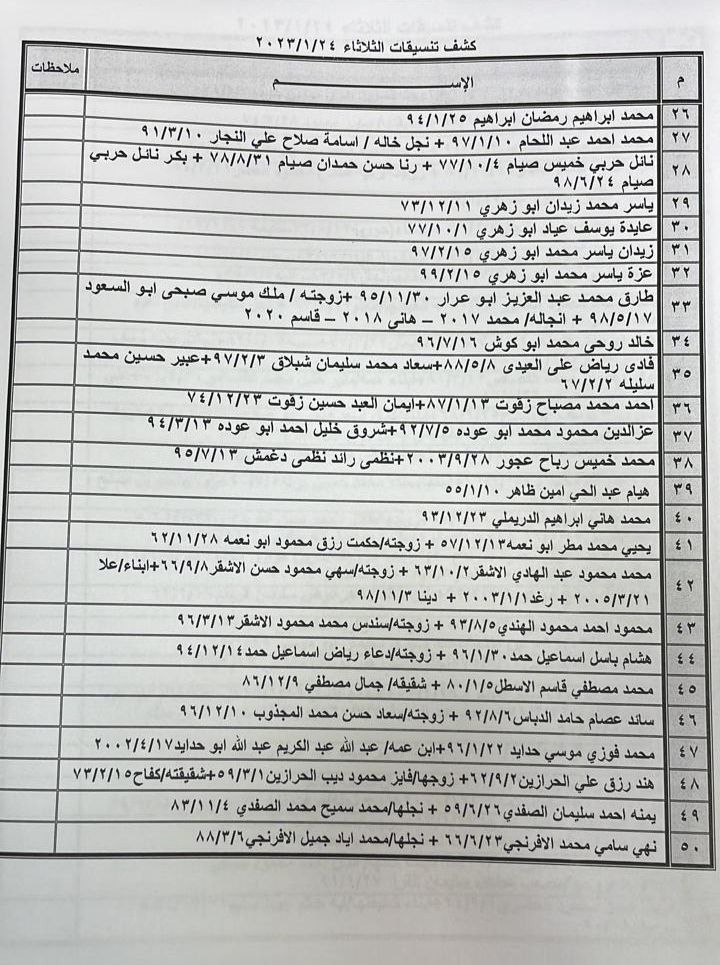 كشف تنسيقات الثلاثاء ٢٠٢٣/١/٢٤
م الإســـم ملاحظات
٢٦ محمد ابراهيم رمضان ابراهيم ٩٤/١/٢٥
٢٧ محمد احمد عبد اللحام ٩٧/١/١٠ + نجل خاله / اسامة صلاح علي النجار ٩١/٣/١٠
٢٨ نائل حربي خميس صيام ٧٧/١٠/٤ + رنا حسن حمدان صيام ٧٨/٨/٣١ + بكر نائل حربي
صيام ٩٨/٦/٢٤
٢٩ ياسر محمد زيدان ابو زهري ٧٣/١٢/١١
٣٠ عايدة يوسف عياد ابو زهري ٧٧/١٠/١
٣١ زيدان ياسر محمد ابو زهري ٩٧/٢/١٥
٣٢ عزة ياسر محمد ابو زهري ٩٩/٢/١٥
٣٣ طارق محمد عبد العزيز ابو عرار ٩٥/١١/٣٠ +زوجته / ملك موسي صبحى ابو السعود
٩٨/٥/١٧ + انجاله/ محمد ٢٠١٧ – هانى ٢٠١٨ – قاسم ٢٠٢٠
٣٤ خالد روحى محمد ابو كوش ٩٦/٧/١٦
٣٥ فادى رياض على العيدى ٨٨/٥/٨+سعاد محمد سليمان شبلاق ٩٧/٢/٣+عبير حسين محمد
سليله ٦٧/٢/٢
٣٦ احمد محمد مصباح زقوت ٨٧/١/١٣+ايمان العبد حسين زقوت ٧٤/١٢/٢٣
٣٧ عزالدين محمود محمد ابو عوده ٩٢/٧/٥+شروق خليل احمد ابو عوده ٩٤/٣/١٣
٣٨ محمد خميس رباح عجور ٢٠٠٣/٩/٢٨+نظمى رائد نظمى دغمش ٩٥/٧/١٣
٣٩ هيام عبد الحي امين ظاهر ٥٥/١/١٠
٤٠ محمد هاني ابراهيم الدريملي ٩٣/١٢/٢٣
٤١ يحيي محمد مطر ابو نعمه٥٧/١٢/١٣ + زوجته/حكمت رزق محمود ابو نعمه ٦٢/١١/٢٨
٤٢ محمد محمود عبد الهادي الاشقر٦٣/١٠/٢ + زوجته/سهي محمود حسن الاشقر٦٦/٩/٨+ابناء/علا
٢٠٠٥/٣/٢١ + رغد٢٠٠٣/١/١ + دينا ٩٨/١١/٣
٤٣ محمود احمد محمود الهندي٩٣/٨/٥ + زوجته/سندس محمد محمود الاشقر٩٦/٣/١٣
٤٤ هشام باسل اسماعيل حمد٩٦/١/٣٠ + زوجته/دعاء رياض اسماعيل حمد٩٤/١٢/١٤
٤٥ محمد مصطفي قاسم الاسطل٨٠/١/٥ + شقيقه/ جمال مصطفي ٨٦/١٢/٩
٤٦ سائد عصام حامد الدباس٩٢/٨/٦ + زوجته/سعاد حسن محمد المجذوب ٩٦/١٢/١٠
٤٧ محمد فوزي موسي حدايد ٩٦/١/٢٢+ابن عمه/ عبد الله عبد الكريم عبد الله ابو حدايد٢٠٠٢/٤/١٧
٤٨ هند رزق علي الحرازين٦٢/٩/٢+ زوجها/فايز محمود ديب الحرازين٥٩/٣/١+شقيقته/كفاح٧٣/٢/١٥
٤٩ يمنه احمد سليمان الصفدي٥٩/٦/٢٦ + نجلها/محمد سميح محمد الصفدي ٨٣/١١/٤
٥٠ نهي سامي محمد الافرنجي٦٦/٦/٢٣ + نجلها/محمد اياد جميل الافرنجي٨٨/٣/٦